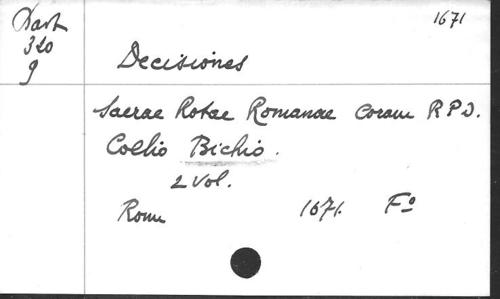 1671
Dart
320
9
Decisiones
Sacrae Rotae Romanae coram R P D.
Coelio Bichio.
2 Vol.
Rom 1671. Fo